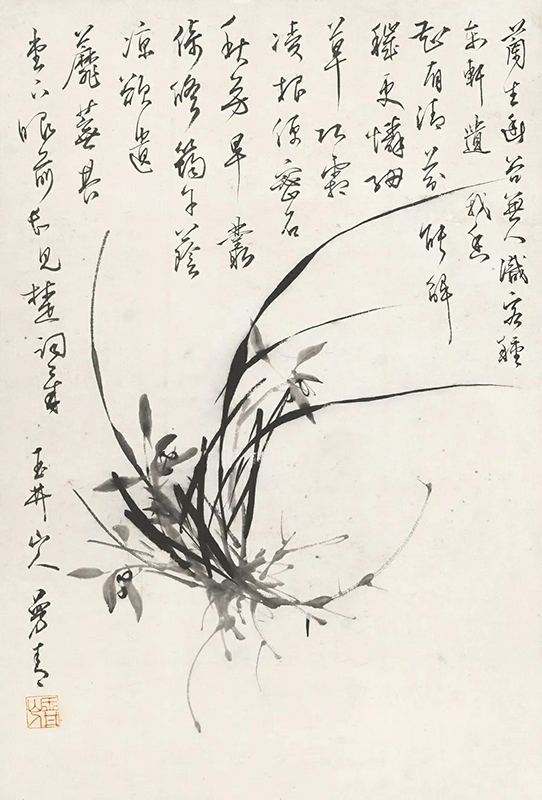 蘭生幽谷無人識客種
東軒遺我香
知有清芬能解
穢更憐細
草巧霜
凌根便密石
秋芳早叢
倚修筠午蔭
涼欲遣
蘼蕪共
堂下眼前長見楚詞章 玉井山人 曼青